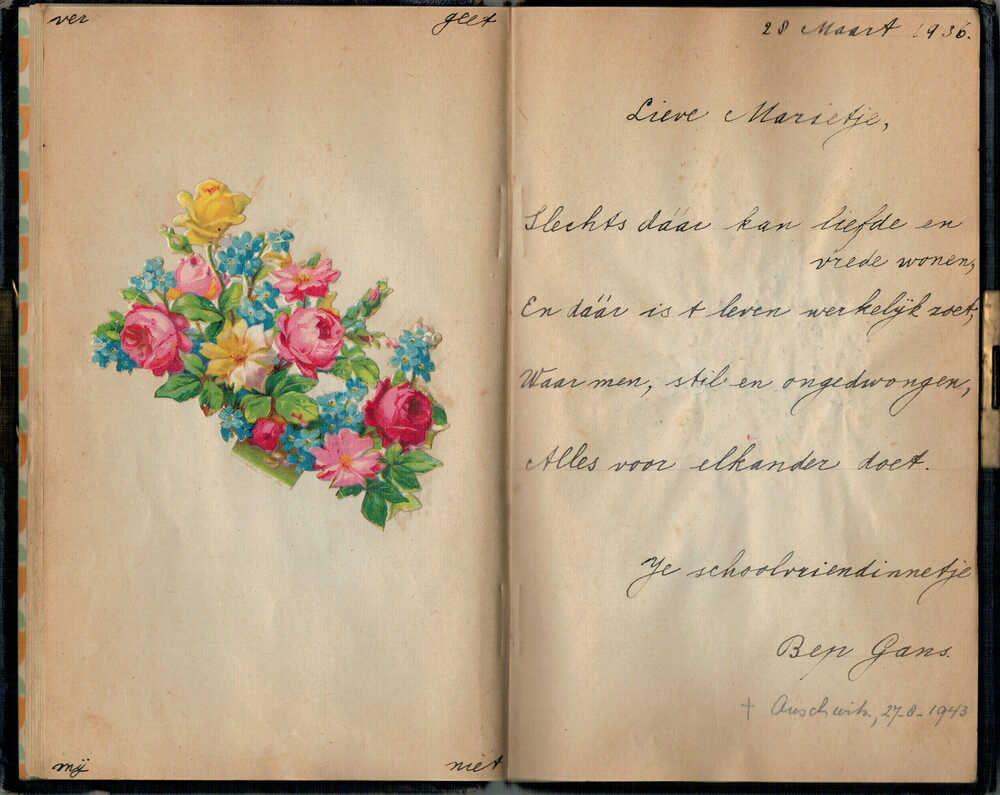 ver geet
mij niet
28 Maart 1936.
Lieve Marietje,
Slechts dáár kan liefde en
vrede wonen,
En dáár is 't leven werkelijk zoet,
Waar men, stil en ongedwongen,
Alles voor elkander doet.
Je schoolvriendinnetje
Bep Gans.
† Auschwitz, 27-8-1943